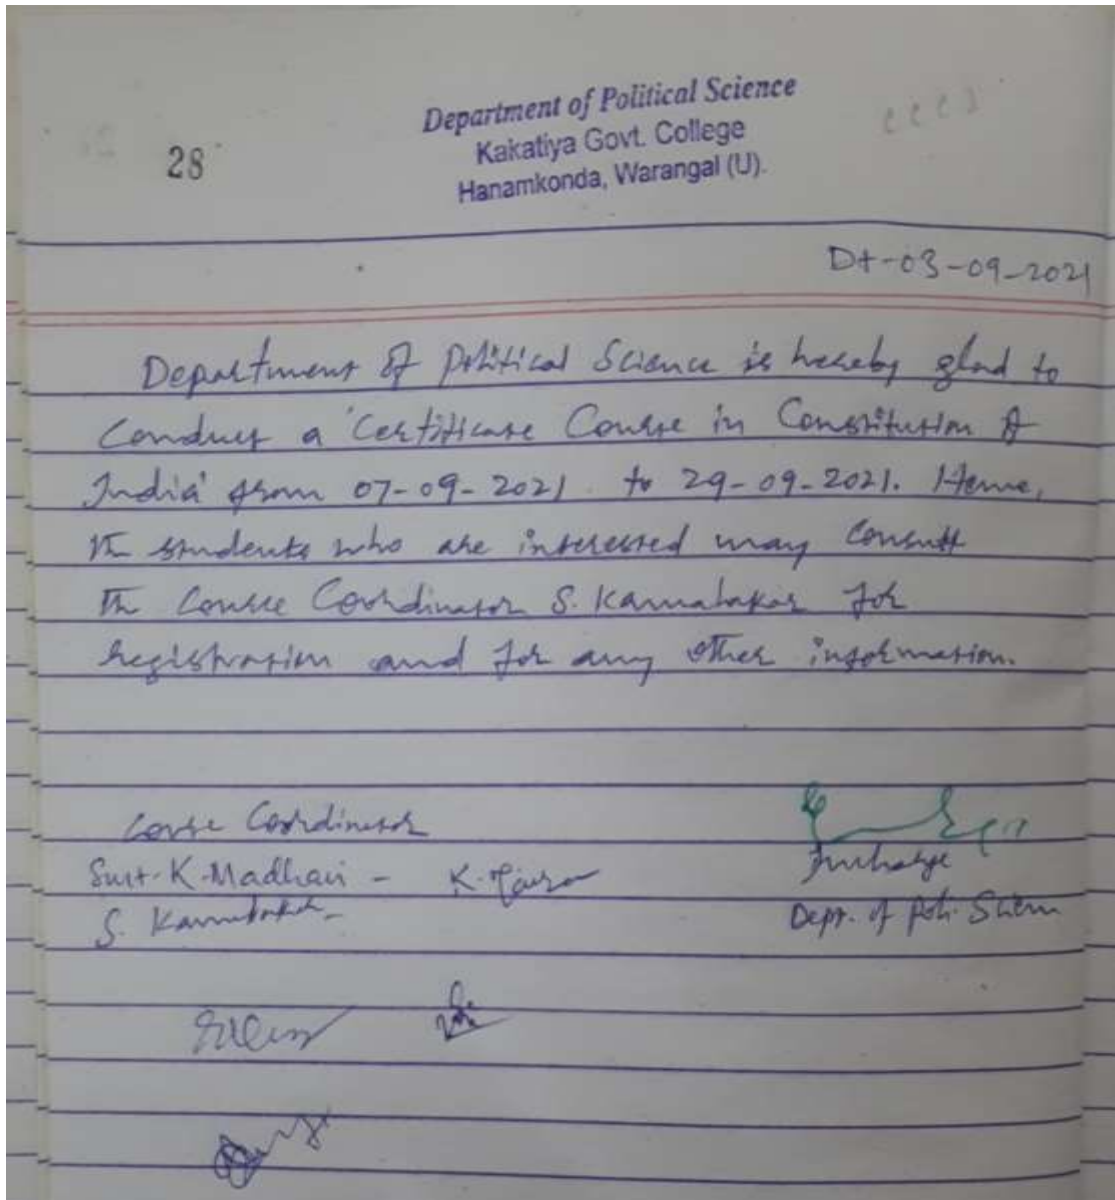 Department of Political Science
28
Kakatiya Govt. College
Hanamkonda, Warangal (U).
Dt-03-09-2021
Department of Political Science is hereby glad to
Conduct a 'Certificate Course in Constitution of
India' from 07-09-2021 to 29-09-2021. Hence,
the students who are interested may Consult
the Course Coordinator S. Karunakar for
registration and for any other information.
Course Coordinator
Smt. K. Madhavi -
Incharge
S. Karunakar -
Dept. of Poli. Science